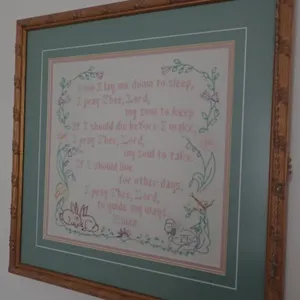 Now I lay me down to sleep,
I pray Thee, Lord,
my soul to keep
If I should die before I wake,
I pray Thee, Lord,
my soul to take.
If I should live
for other days,
I pray Thee, Lord,
to guide my ways.